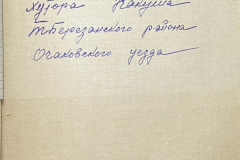 Хутора Какуша
Т-Березанского района
Очаковского уезда